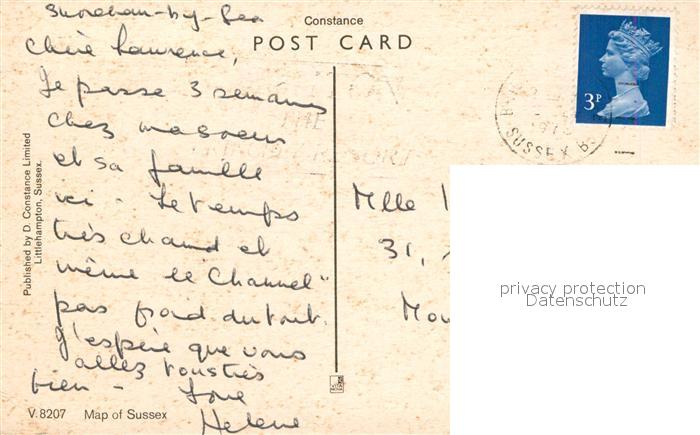 Shoreham-by-Sea
Chère Laurence,
Je passe 3 semaines
chez ma soeur
et sa famille
ici - Le temps
très chaud et
même le "Channel"
pas froid du tout.
J'espère que vous
allez tous très
bien - Love
Helene
Constance
POST CARD
3P
SUSSEX
Mlle
31,
Mou
privacy protection
Datenschutz
Published by D. Constance Limited
Littlehampton, Sussex.
V.8207 Map of Sussex